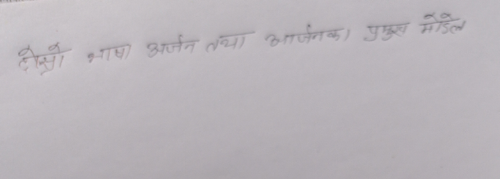 दोस्रो भाषा अर्जन तथा आर्जनका प्रमुख मोडेल